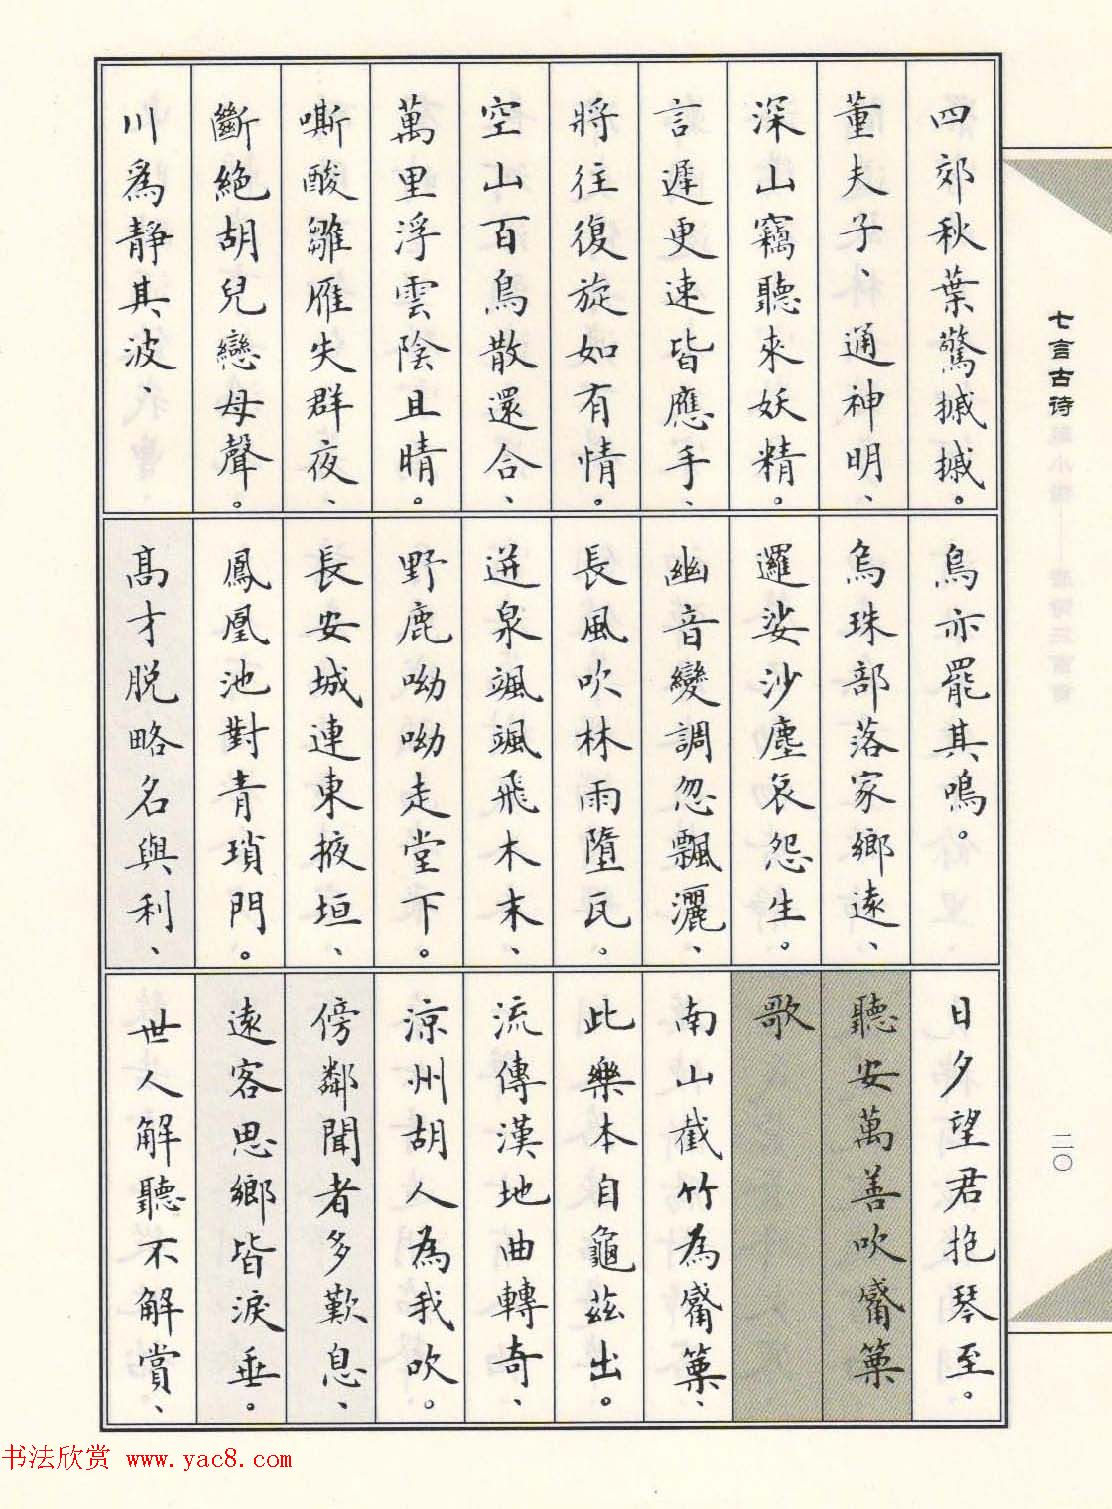 四郊秋葉驚摵摵。
董夫子、通神明、
深山竊聽來妖精。
言遲更速皆應手、
將往復旋如有情。
空山百鳥散還合、
萬里浮雲陰且晴。
嘶酸雛雁失群夜、
斷絕胡兒戀母聲。
川爲靜其波、
鳥亦罷其鳴。
烏珠部落家鄉遠、
邏娑沙塵哀怨生。
幽音變調忽飄灑、
長風吹林雨墮瓦。
迸泉颯颯飛木末、
野鹿呦呦走堂下。
長安城連東掖垣、
鳳凰池對青瑣門。
高才脱略名與利、
日夕望君抱琴至。
聽安萬善吹觱篥
歌
南山截竹為觱篥、
此樂本自龜茲出。
流傳漢地曲轉奇、
涼州胡人為我吹。
傍鄰聞者多歎息、
遠客思鄉皆淚垂。
世人解聽不解賞、
七言古诗
二〇
书法欣赏 www.yac8.com